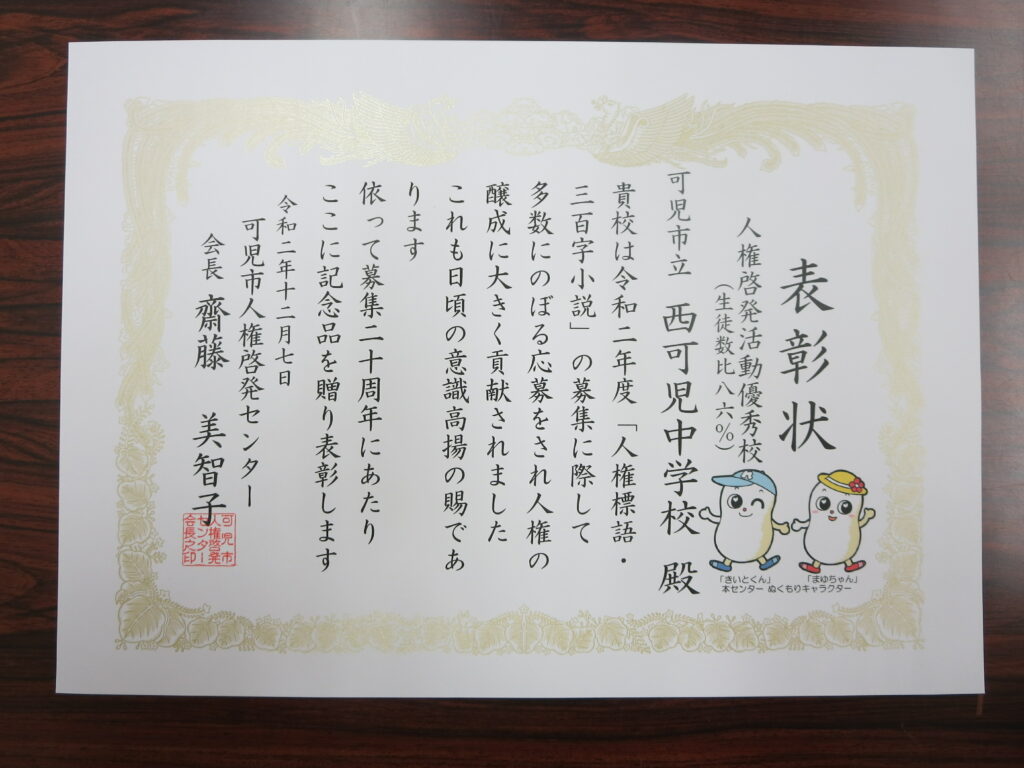 表彰状
人権啓発活動優秀校
（生徒数比八六％）
可児市立 西可児中学校 殿
貴校は令和二年度「人権標語・
三百字小説」の募集に際して
多数にのぼる応募をされ人権の
醸成に大きく貢献されました
これも日頃の意識高揚の賜であ
ります
依って募集二十周年にあたり
ここに記念品を贈り表彰します
令和二年十二月七日
可児市人権啓発センター
会長 齋藤 美智子
可児市
人権啓発
センター
会長之印
「きいとくん」 「まゆちゃん」
本センター ぬくもりキャラクター